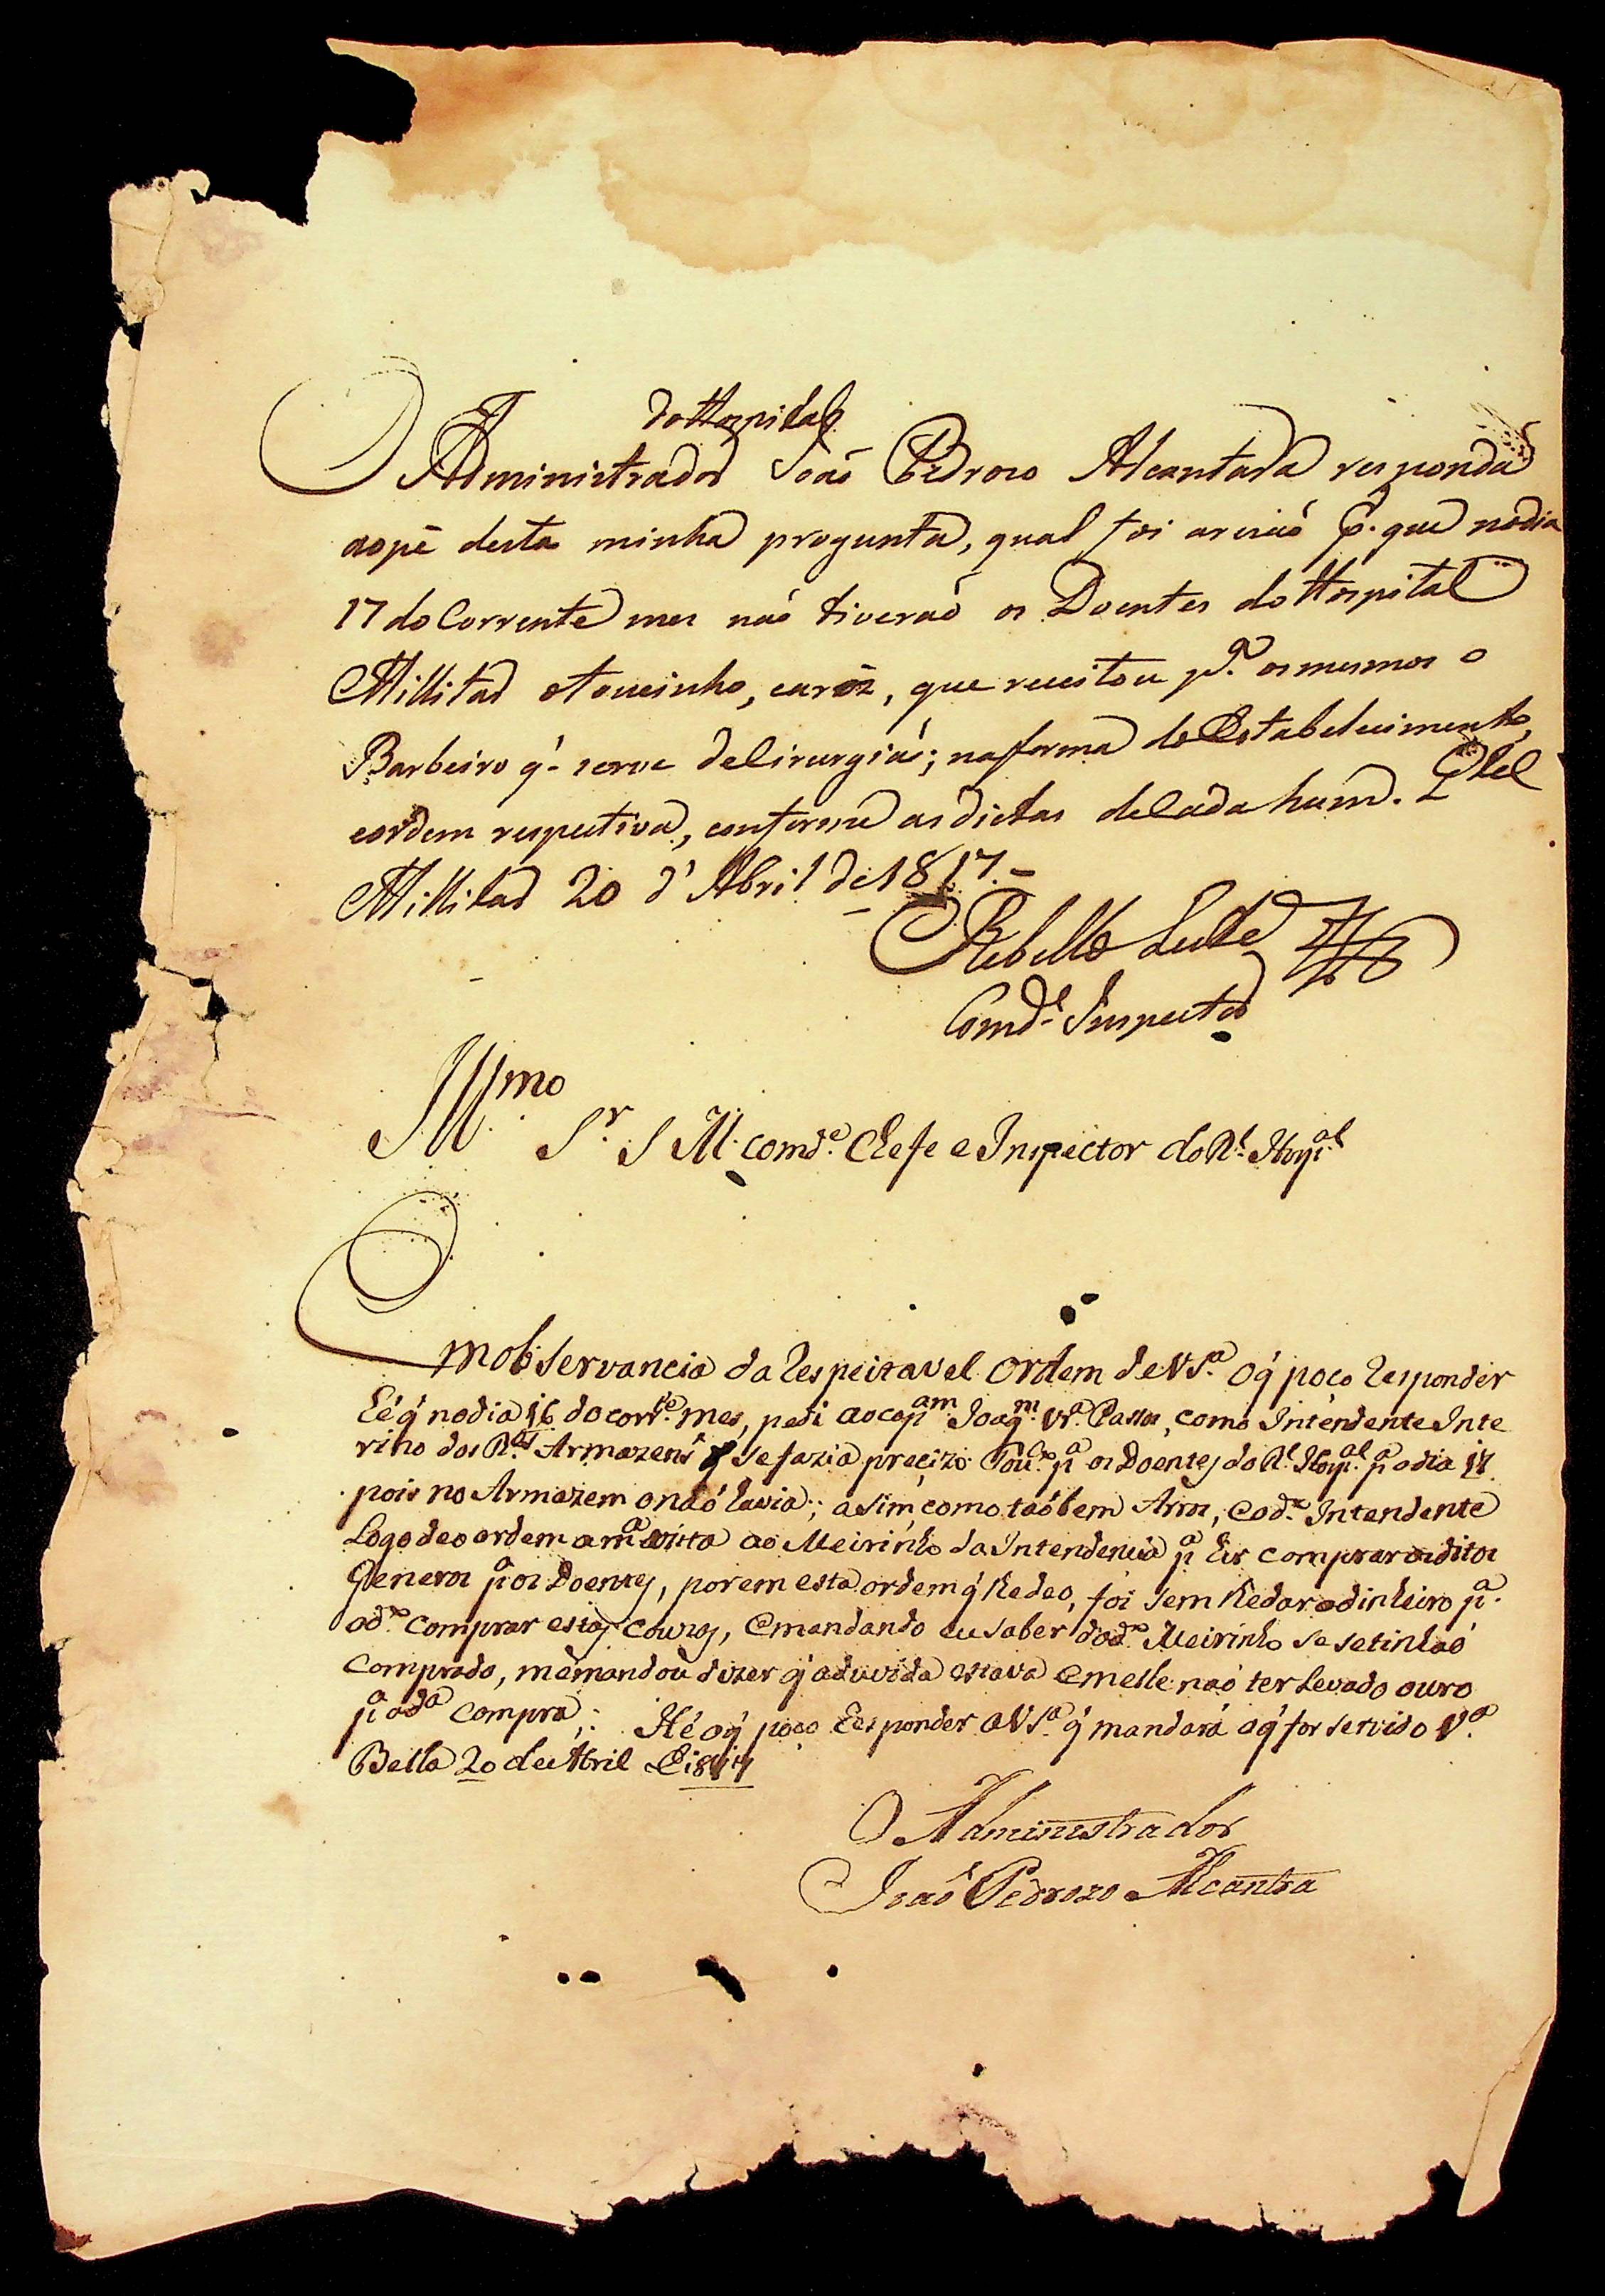 do Hospital
O Administrador João Pedrozo Alcantara responda
aopé desta minha progunta, qual foi arezaó p. que nodia
17 do Corrente mes naó tiveraó os Doentes do Hospital
Millitar otoucinho, earôz, que receitou p.ª osmesmos o
Barbeiro q̃ serve deCirurgiaó; naforma do Estabelecimento,
eordem respectiva, conforme asdietas deCada hum. Q.tel
Millitar 20 d'Abril de 1817.
Rebello Leite
Comd.e Inspector
Ill.mo
S.r S M. comd.e Chefe e Inspector do R.l Hospi.al
Em observancia da Respeitavel Ordem deVS.ª Oq̃ poço Responder
hé q̃ nodia 16 do corr.te mes, pedi aocap.am Joaq.m Vr.ª Passos, como Intendente Inte
rino dos R.es Armazens q̃ Sefazia precizo Touc.º p.ª os Doentes do R.l Hospi.al p.ª odia 17
pois no Armazem onaó havia; asim, como taóbem Arros, eod.º Intendente
Logo deo ordem am.ª vista ao Meirinho da Intendencia p.ª hir comprar osditos
Generos p.ª os Doentes, porem esta ordem q̃ lhedeo, foi sem lhedar odinheiro p.ª
od.º comprar estas couzas, Emandando eu saber dod.º Meirinho se setinhaó
comprado, memandou dizer q̃ aduvida estava Emelle naó ter Levado ouro
p.ª ad.ª compra; Hé oq̃ poço Responder aVS.ª q̃ mandará oq̃ for servido V.ª
Bella 20 de Abril de 1817
O Administrador
Joaó Pedrozo Alcantra